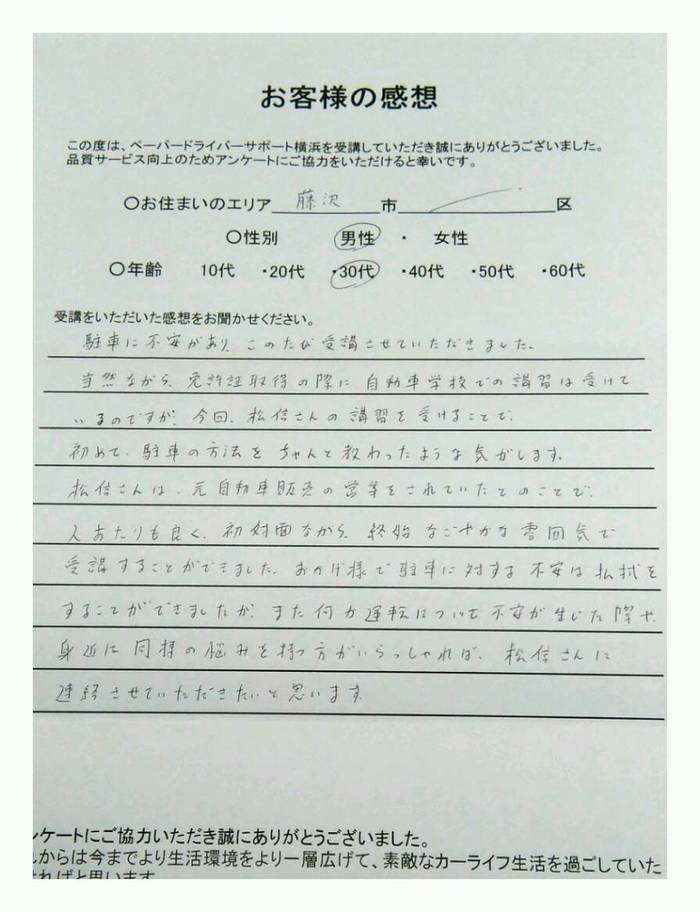 お客様の感想
この度は、ペーパードライバーサポート横浜を受講していただき誠にありがとうございました。
品質サービス向上のためアンケートにご協力をいただけると幸いです。
〇お住まいのエリア 藤沢 市 区
〇性別 男性 ・ 女性
〇年齢 10代 ・20代 ・30代 ・40代 ・50代 ・60代
受講をいただいた感想をお聞かせください。
駐車に不安があり、このたび受講させていただきました。
当然ながら、免許証取得の際に自動車学校での講習は受けて
いるのですが、今回、松信さんの講習を受けることで、
初めて、駐車の方法をちゃんと教わったような気がします。
松信さんは、元自動車販売の営業をされていたとのことで、
人あたりも良く、初対面ながら、終始なごやかな雰囲気で
受講することができました。おかげ様で駐車に対する不安は払拭を
することができましたが、また何か運転について不安が生じた際や、
身近に同様の悩みを持つ方がいらっしゃれば、松信さんに
連絡させていただきたいと思います。
ンケートにご協力いただき誠にありがとうございました。
からは今までより生活環境をより一層広げて、素敵なカーライフ生活を過ごしていた
ければと思います